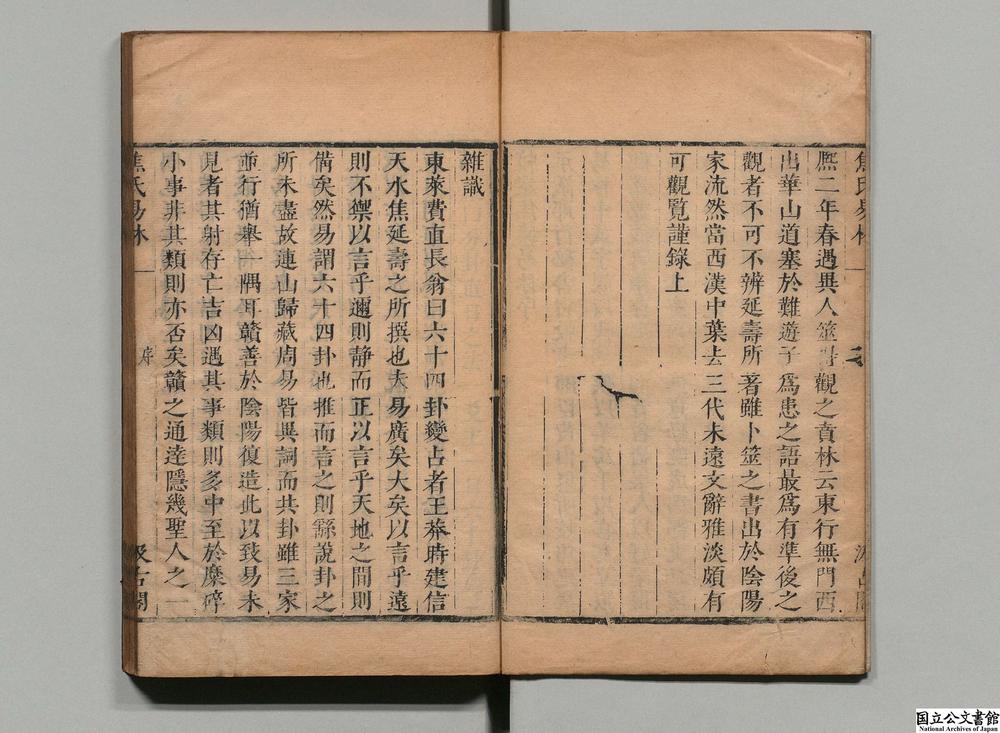 焦氏易林
熈二年春遇異人筮得觀之賁林云東行無門西
出華山道塞於難遊子爲患之語最爲有準後之
觀者不可不辨延壽所著雖卜筮之書出於陰陽
家流然當西漢中葉去三代未遠文辭雅淡頗有
可觀覽謹錄上
雜識
東萊費直長翁曰六十四卦變占者王莽時建信
天水焦延壽之所撰也夫易廣矣大矣以言乎遠
則不禦以言乎邇則静而正以言乎天地之間則
備矣然易謂六十四卦也推而言之則繇說卦之
所未盡故連山歸藏周易皆異詞而共卦雖三家
並行猶舉一隅耳贛善於陰陽復造此以致易未
見者其射存亡吉凶遇其事類則多中至於糜碎
小事非其類則亦否矣贛之通逹隱幾聖人之一
焦氏易林 一 序 汲古閣
国立公文書館
National Archives of Japan